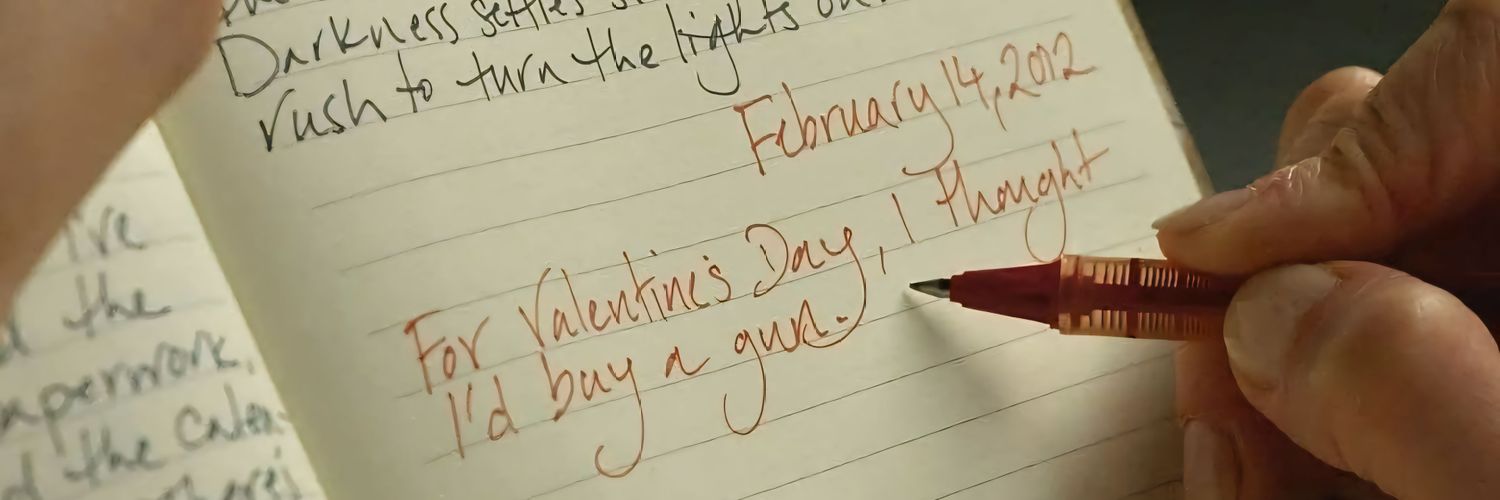 Darkness settles
rush to turn the lights
February 14, 2012
For Valentine's Day, I thought
I'd buy a gun.
I've
the
the